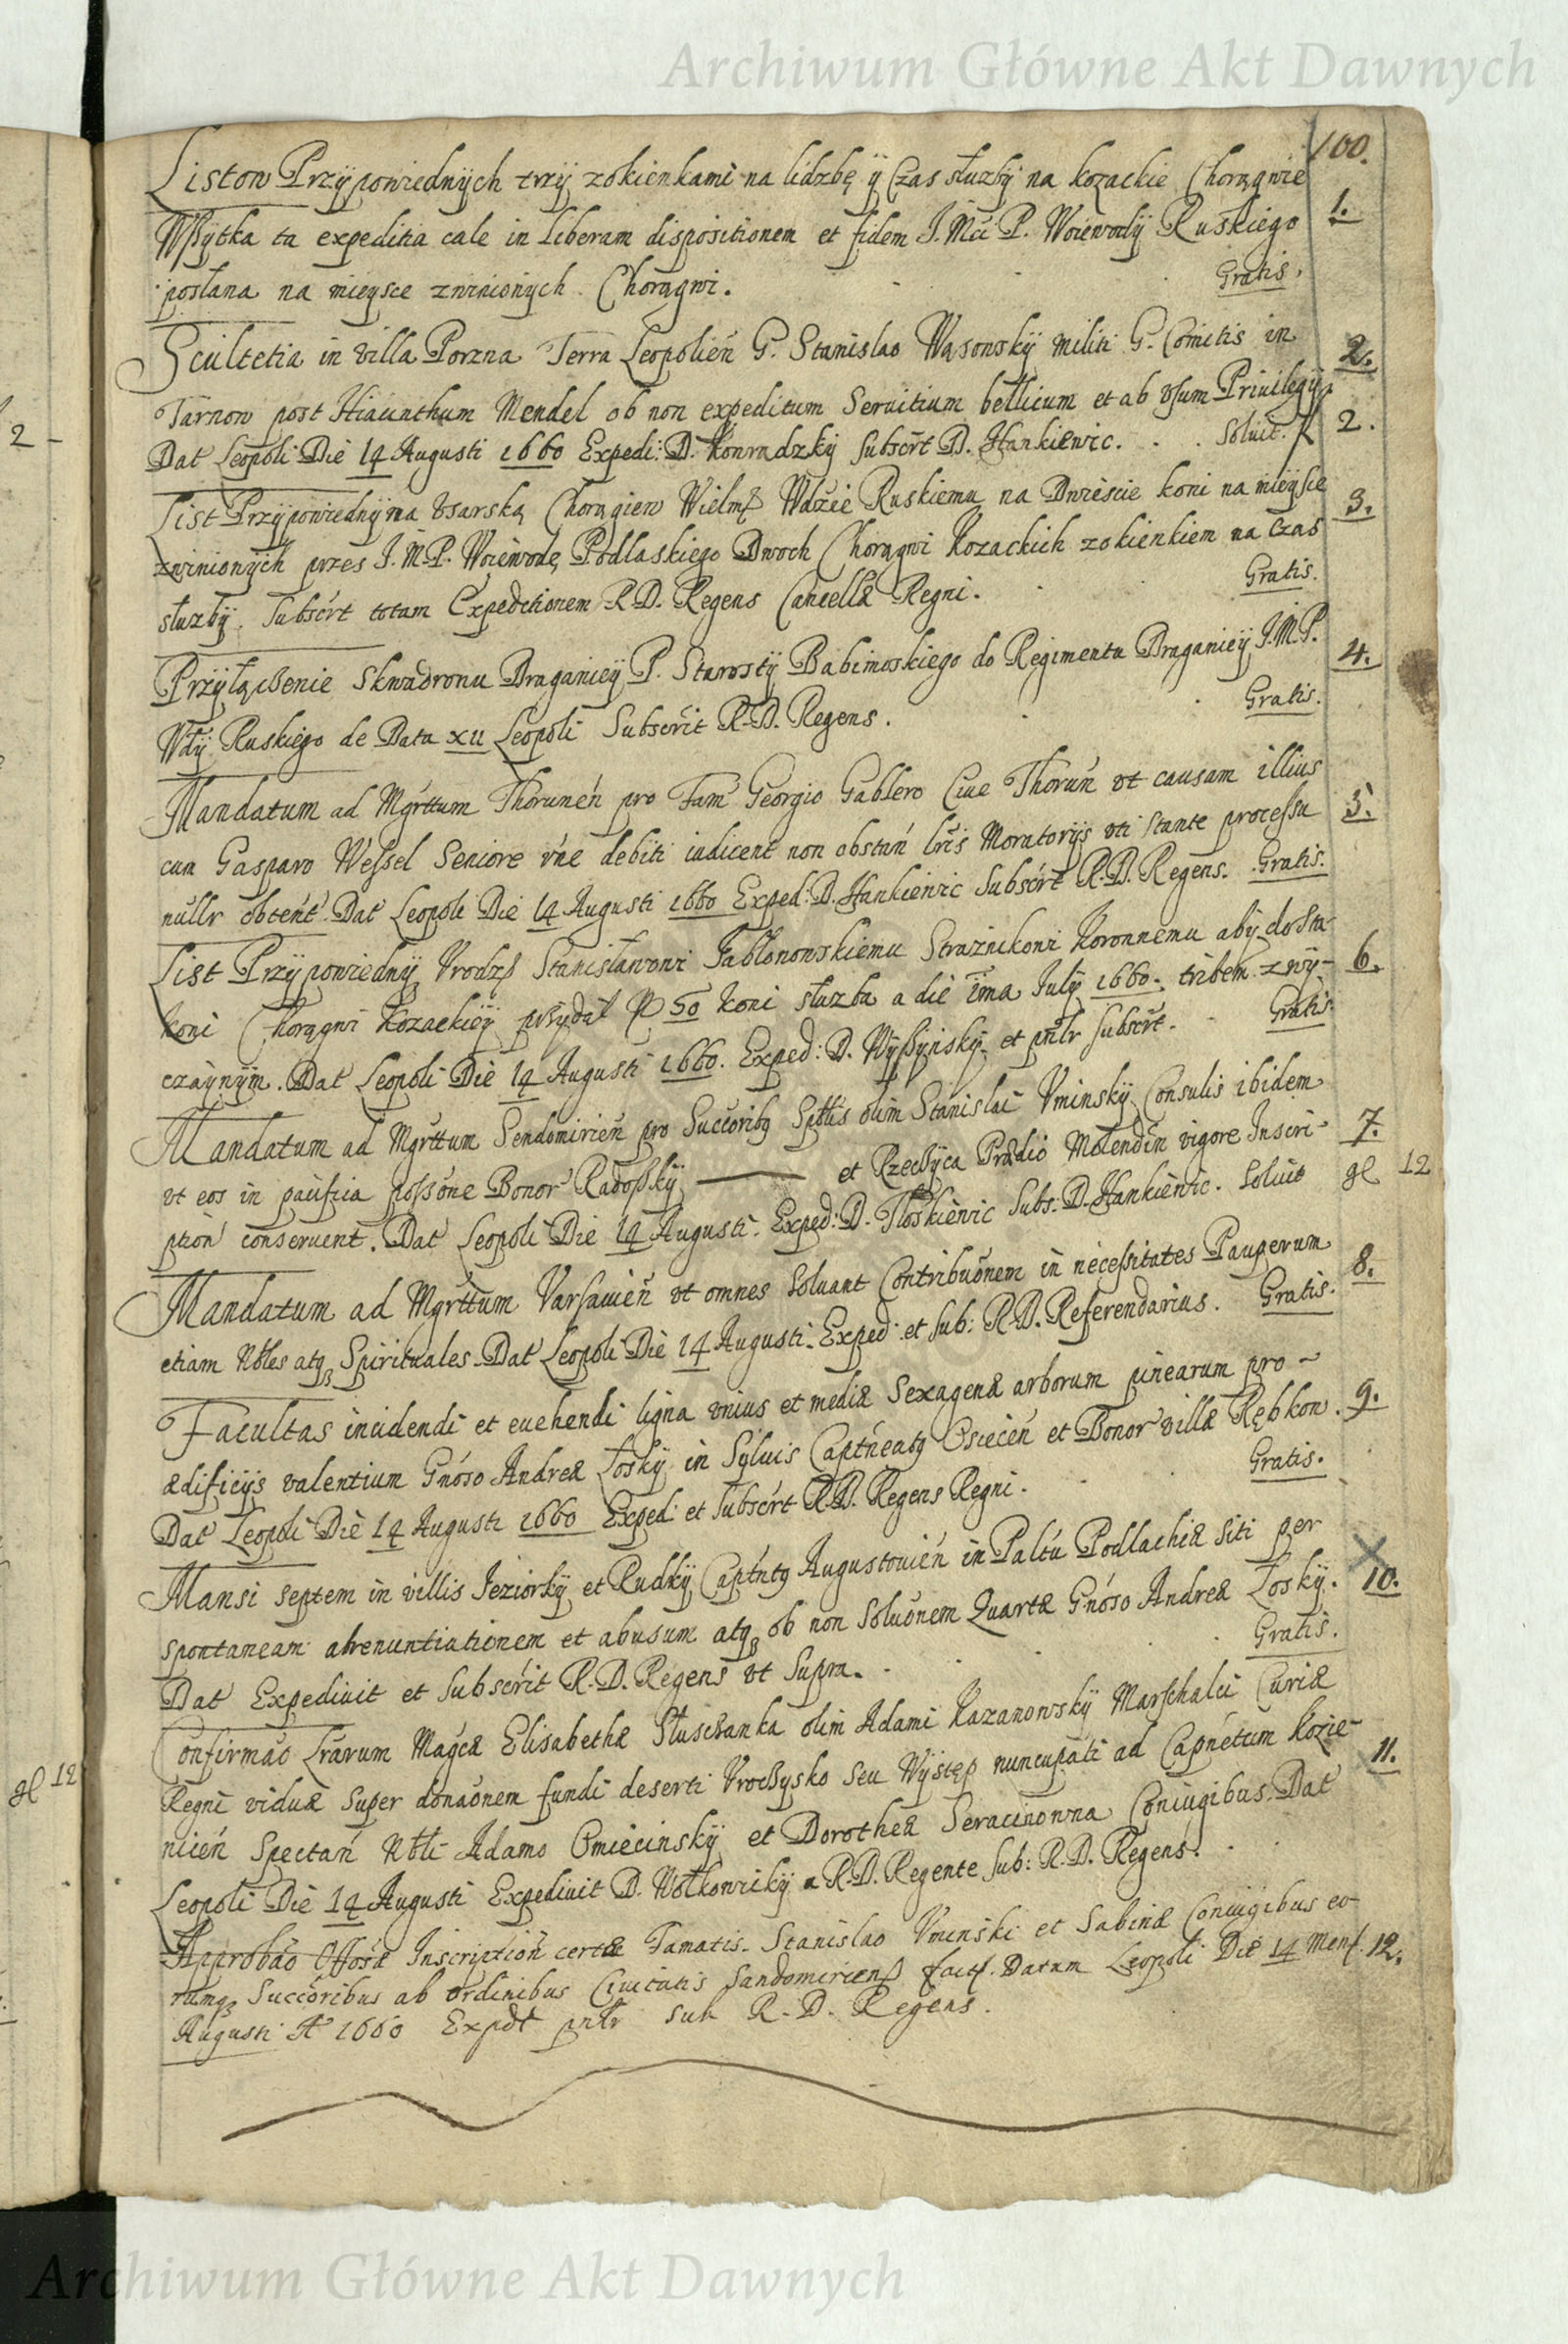 Archiwum Główne Akt Dawnych
100.
Listow Przypowiednych trzy zokienkami na lidzbę y Czas służby na kozackie Chorągwie
Wszytka ta expeditia cale in liberam dispositionem et fidem J. Mći P. Woiewody Ruskiego 1.
posłana na mieysce zwinionych Chorągwi. Gratis.
Scultetia in villa Porzna Terra Leopolień G. Stanislao Wąsowsky militi G. Comitis in 2.
Tarnow post Hiacinthum Mendel ob non expeditum Seruitium bellicum et ab vsum Priuilegij.
Dat Leopoli Die 14 Augusti 1660 Expedi: D. Konradzky Subscrt D. Hankiewic. Soluit. f 2.
List Przypowiedny na vsarską Chorągiew Wielmꝭ Wdzie Ruskiemu na Dwiescie koni na mieysce 3.
zwinionych przes J. M. P. Woiewodę Podlaskiego Dwoch Chorągwi Kozackich zokienkiem na Czas
służby. Subscrt totam Expeditionem R. D. Regens Cancellæ Regni. Gratis.
Przyłączenie Skwadronu Draganiey P. Starosty Babimoskiego do Regimentu Draganiey J. M. P. 4.
Wdy Ruskiego de Data xii Leopoli Subscrit R. D. Regens. Gratis.
Mandatum ad Mgrttum Thorunen pro Fam Georgio Gablero Ciue Thoruń vt causam illius 5.
cum Gasparo Wessel Seniore rne debiti iudicent non obstań lris Moratorijs vti stante processu
nullr obtent. Dat Leopoli Die 14 Augusti 1660 Exped: D. Hankiewic Subscrt R. D. Regens. Gratis.
List Przypowiedny Vrodzꝭ Stanisławowi Jabłonowskiemu Straznikowi Koronnemu aby do Sta
koni Chorągwi Kozackiey przydał 50 koni służba a die ima July 1660. tribem zwy- 6.
czaynym. Dat Leopoli Die 14 Augusti 1660. Exped: D. Wyszynsky et pntr subscrt. Gratis.
Mandatum ad Mgrttum Sendomirień pro Succoribꝫ Spttis olim Stanislai Vminsky Consulis ibidem
vt eos in pacifica possone Bonor Radoszky et Rzeczyca Prædio Molendin vigore Inscri- 7.
ption conseruent. Dat Leopoli Die 14 Augusti. Exped: D. Tloskiewic Subs. D. Hankiewic. Soluit gl 12
Mandatum ad Mgrttum Varsauień vt omnes Soluant Contribuonem in necessitates Pauperum 8.
etiam Nbles atqꝫ Spirituales. Dat Leopoli Die 14 Augusti. Exped. et sub: R. D. Referendarius. Gratis.
Facultas incidendi et euehendi ligna vnius et mediæ Sexagenæ arborum pinearum pro
ædificijs valentium Gnoso Andreæ Łosky in Syluis Captneatꝫ Osiecen et Bonor villæ Rębkow. 9.
Dat Leopoli Die 14 Augusti 1660 Exped: et subscrt R. D. Regens Regni. Gratis.
Mansi septem in villis Jeziorky et Rudky Captntꝫ Augustouień in Paltu Podlachiæ siti per
spontaneam abrenuntiationem et abusum atqꝫ ob non Soluonem Quartæ Gnoso Andreæ Łosky. 10.
Dat Expediuit et Subscrit R. D. Regens vt Supra. Gratis.
Confirmao Lrarum Magcæ Elisabethæ Słuscżanka olim Adami Kazanowsky Marschalci Curiæ
Regni viduæ Super donaonem fundi deserti Vroczysko Seu Występ nuncupati ad Capnetum Kozie- 11.
nicen Spectań Nbli Adamo Omiecinsky et Dorotheæ Seracinowna Coniugibus. Dat
Leopoli Die 14 Augusti Expediuit D. Wołkowicky a R. D. Regente Sub: R. D. Regens.
Approbao Offosæ Inscription certæ Famatis. Stanislao Vminski et Sabinæ Coniugibus eo-
rumqꝫ Succoribus ab ordinibus Ciuitatis Sandomiriens fact. Datum Leopoli Die 14 Mens. 12.
Augusti A 1660 Expdt pntr Sub R. D. Regens.
2 -
gl 12
Archiwum Główne Akt Dawnych